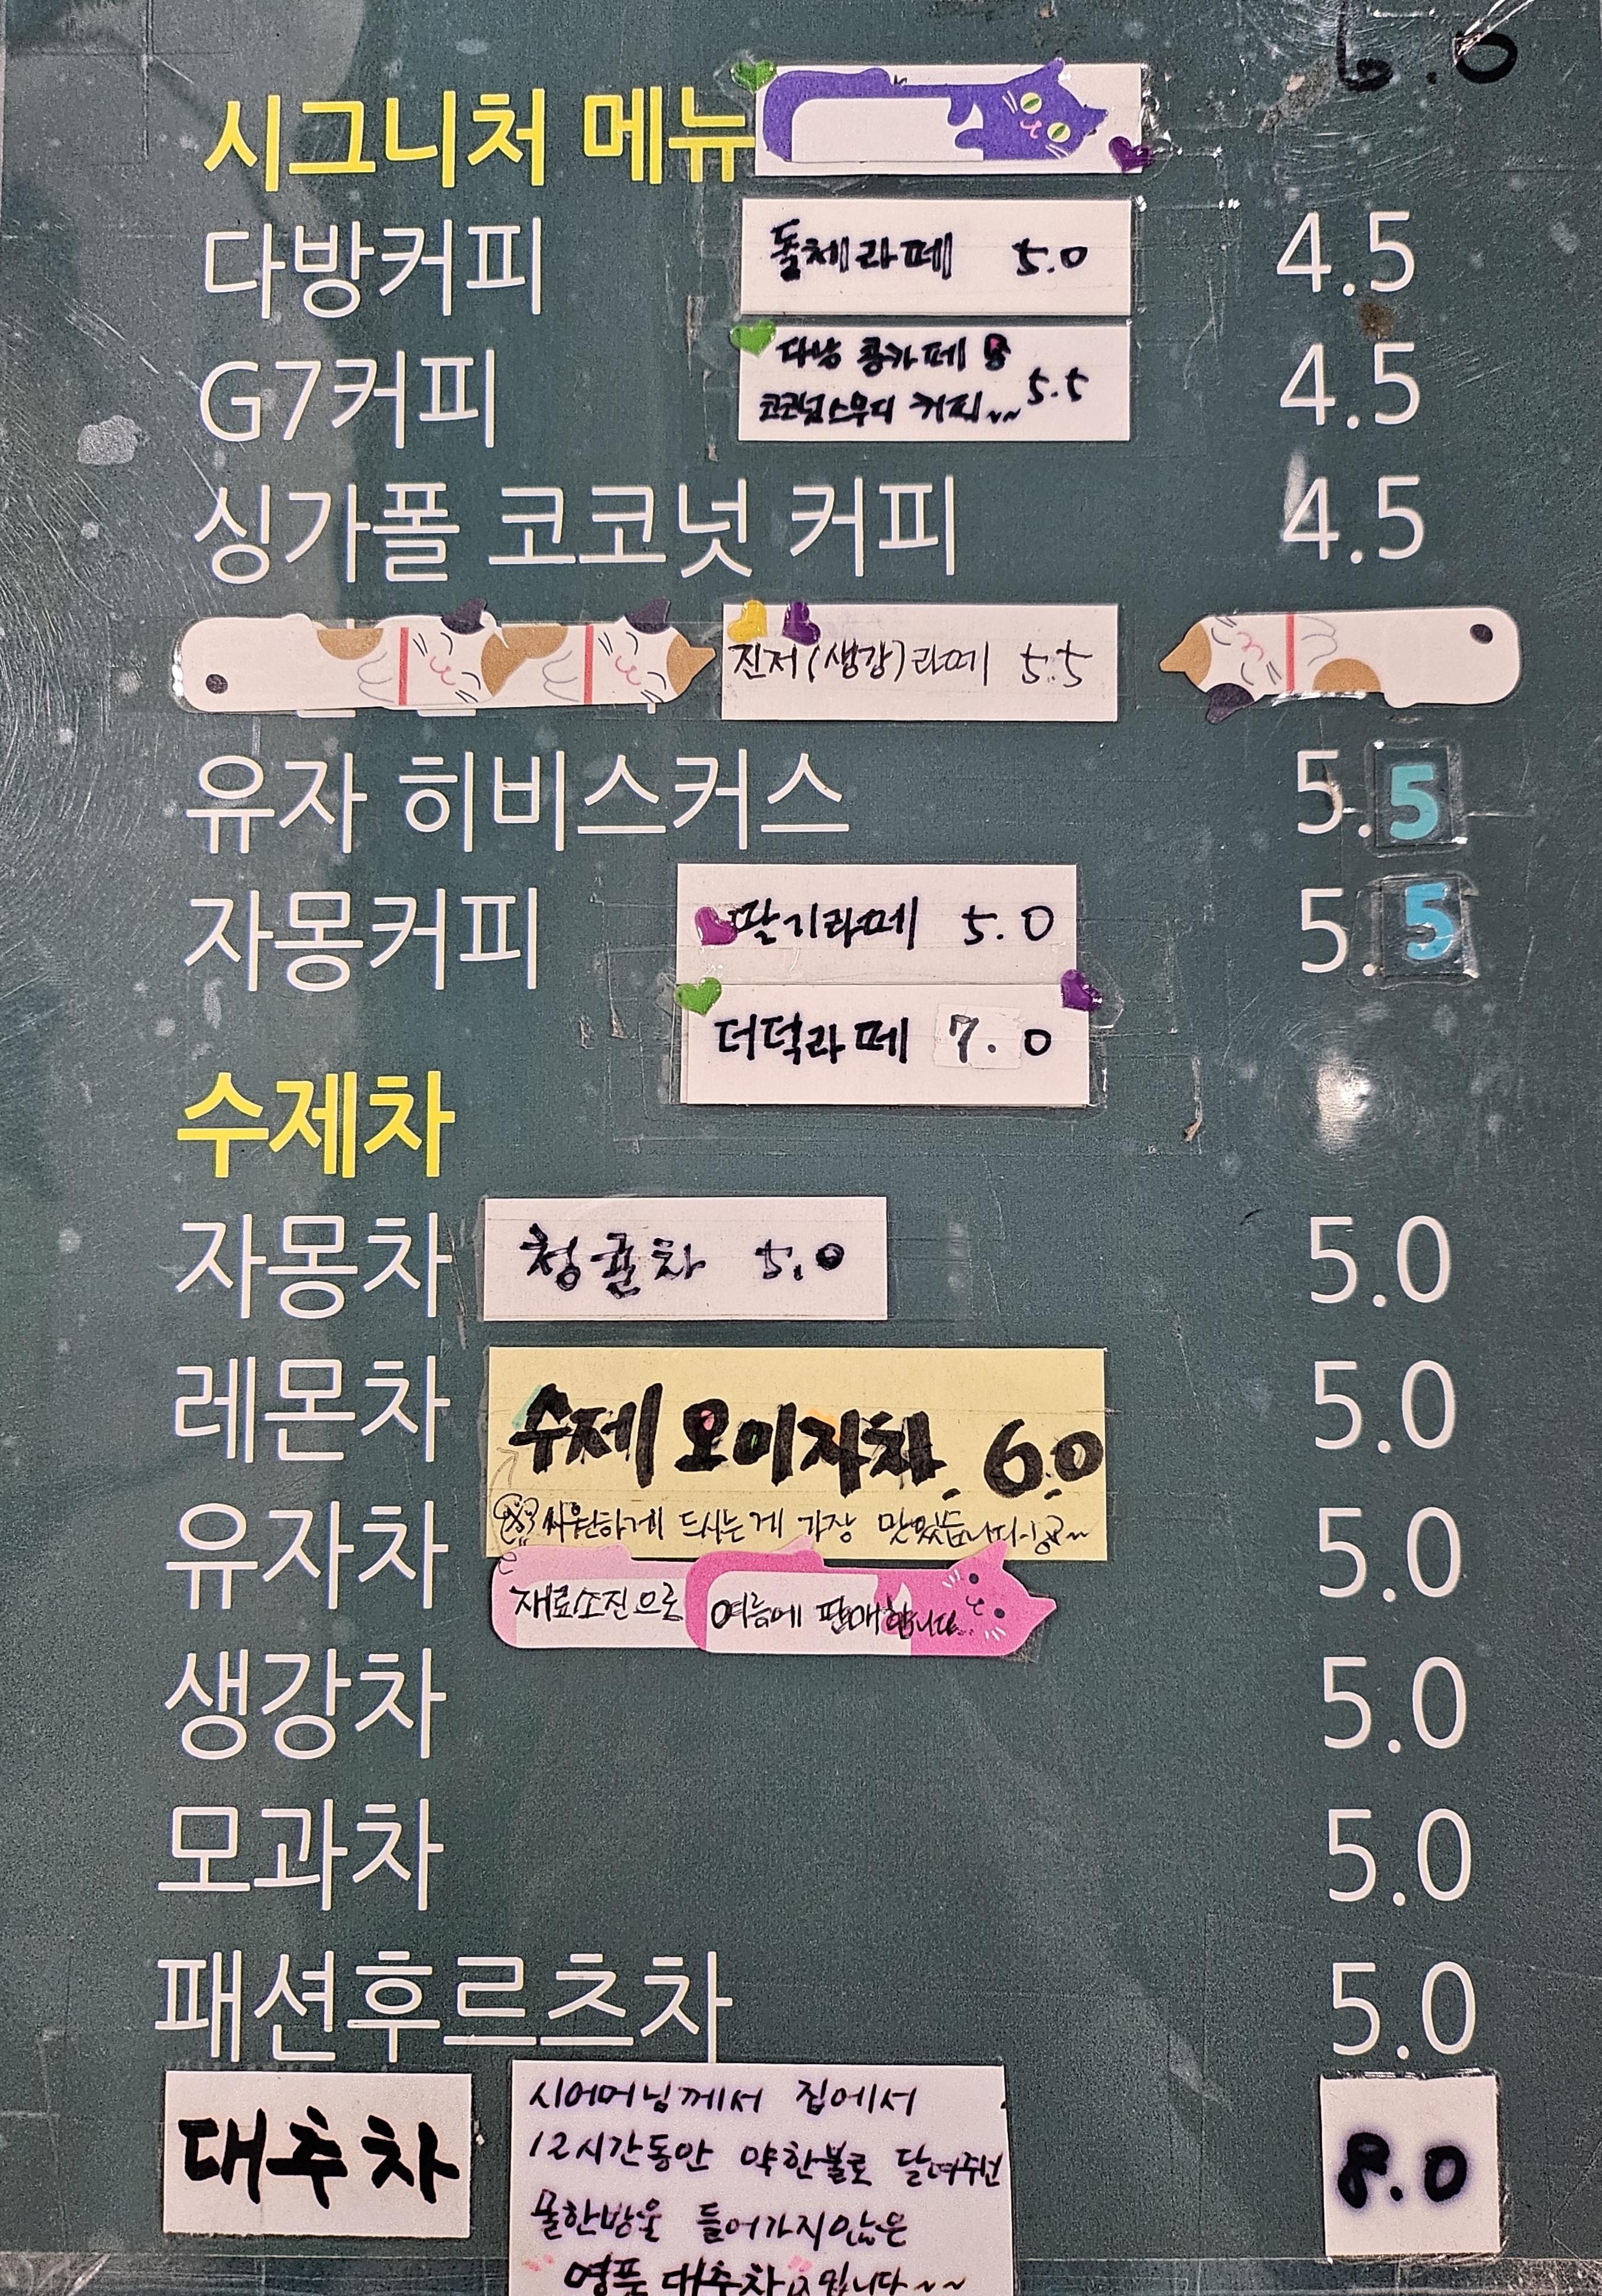 6.0
시그니처 메뉴
다방커피 돌체라떼 5.0 4.5
G7커피 다낭 콩카페 5.5 4.5
코코넛스무디 커피~~
싱가폴 코코넛 커피 4.5
진저(생강)라떼 5.5
유자 히비스커스 5.5
자몽커피 딸기라떼 5.0 5.5
더덕라떼 7.0
수제차
자몽차 청귤차 5.0 5.0
레몬차 수제 오미자차 6.0 5.0
씨원하게 드시는게 가장 맛있습니다~!
유자차 5.0
재료소진으로 여름에 판매합니다..
생강차 5.0
모과차 5.0
패션후르츠차 5.0
대추차 8.0
시어머님께서 집에서
12시간동안 약한불로 달여주신
물한방울 들어가지않은
명품 대추차입니다~~